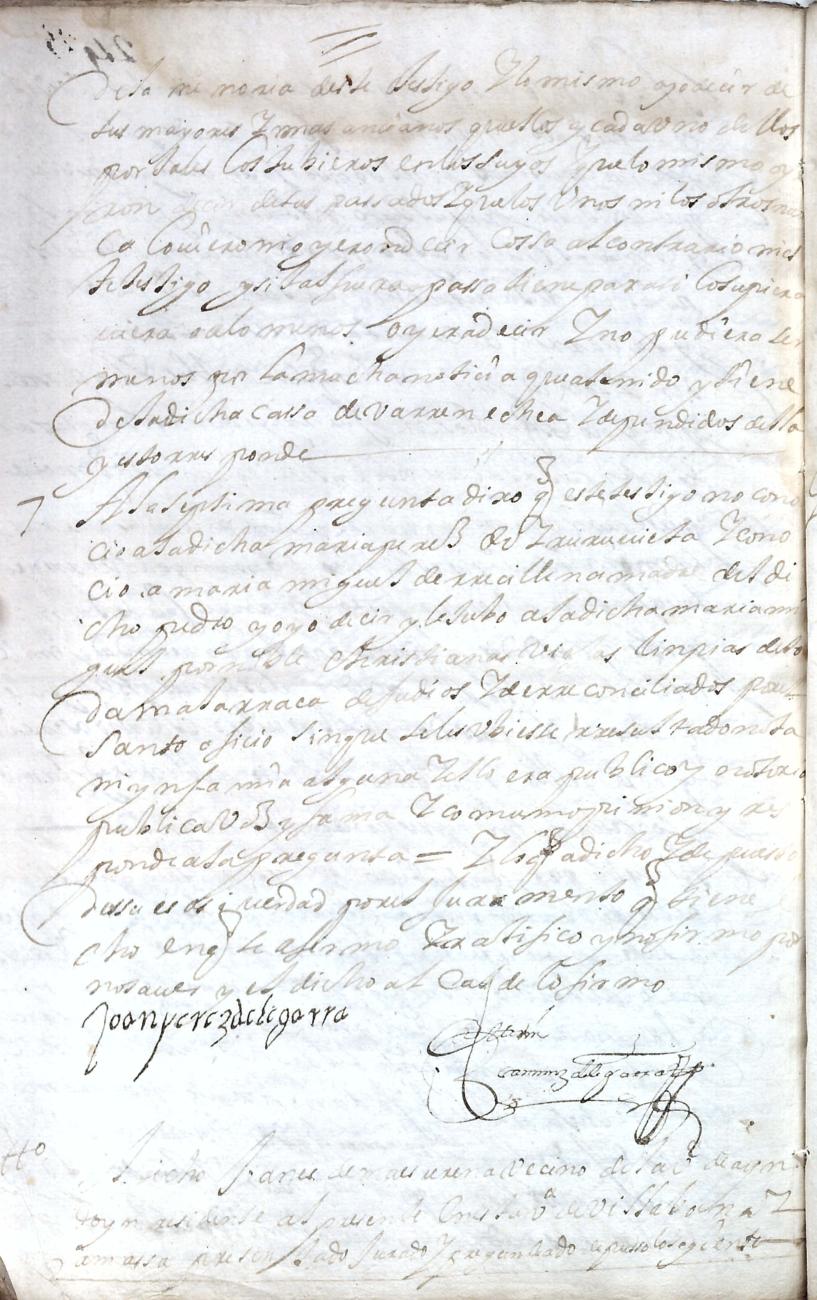 de la memoria deste testigo Y lo mismo oyo decir de
sus mayores Y mas ancianos que ellos y cada uno de llos
por tales los tubieros en los suyos Y que lo mismo oy
eron decir de sus passados Y que los unos ni los otros nun
ca lo vieron ni oyeron decir cossa al contrario ni es
te testigo y si tal fuera o passa tiene para si lo supiera
viera o a lo menos oyera decir Y no pudiera ser
menos por la mucha noticia que a tenido y tiene
de la dicha cassa de varrenechea Y dependidos della
y esto rresponde
7 A la septima pregunta dixo q este testigo no cono
cio a la dicha maria perez de Yrurueuieta Y cono
cio a maria miguel de rrecalle na madre del di
cho pedro y oyo decir y le tubo a la dicha maria mi
guel por noble Christianas viejas limpias de to
da mala rraca de judios Y de rreconciliados por el
santo oficio sin que se les ubiesse rresultado nota
ni ynfamia alguna Y ello era publico y notorio
publica voz y fama Y comun opinion y res
ponde a la pregunta = Y lo q a dicho Y depuesto
desusso es la verdad por el juramento q tiene
cho en q se afirmo Y ratifico y no firmo por
no saver y el dicho alcalde lo firmo
Joan perez de legarra
Ante mi
tto
dicho Juanes de vecino de la
residente al presente en esta va de villabona Y
amassa presentado Jurado Y preguntado depusso lo siguiente